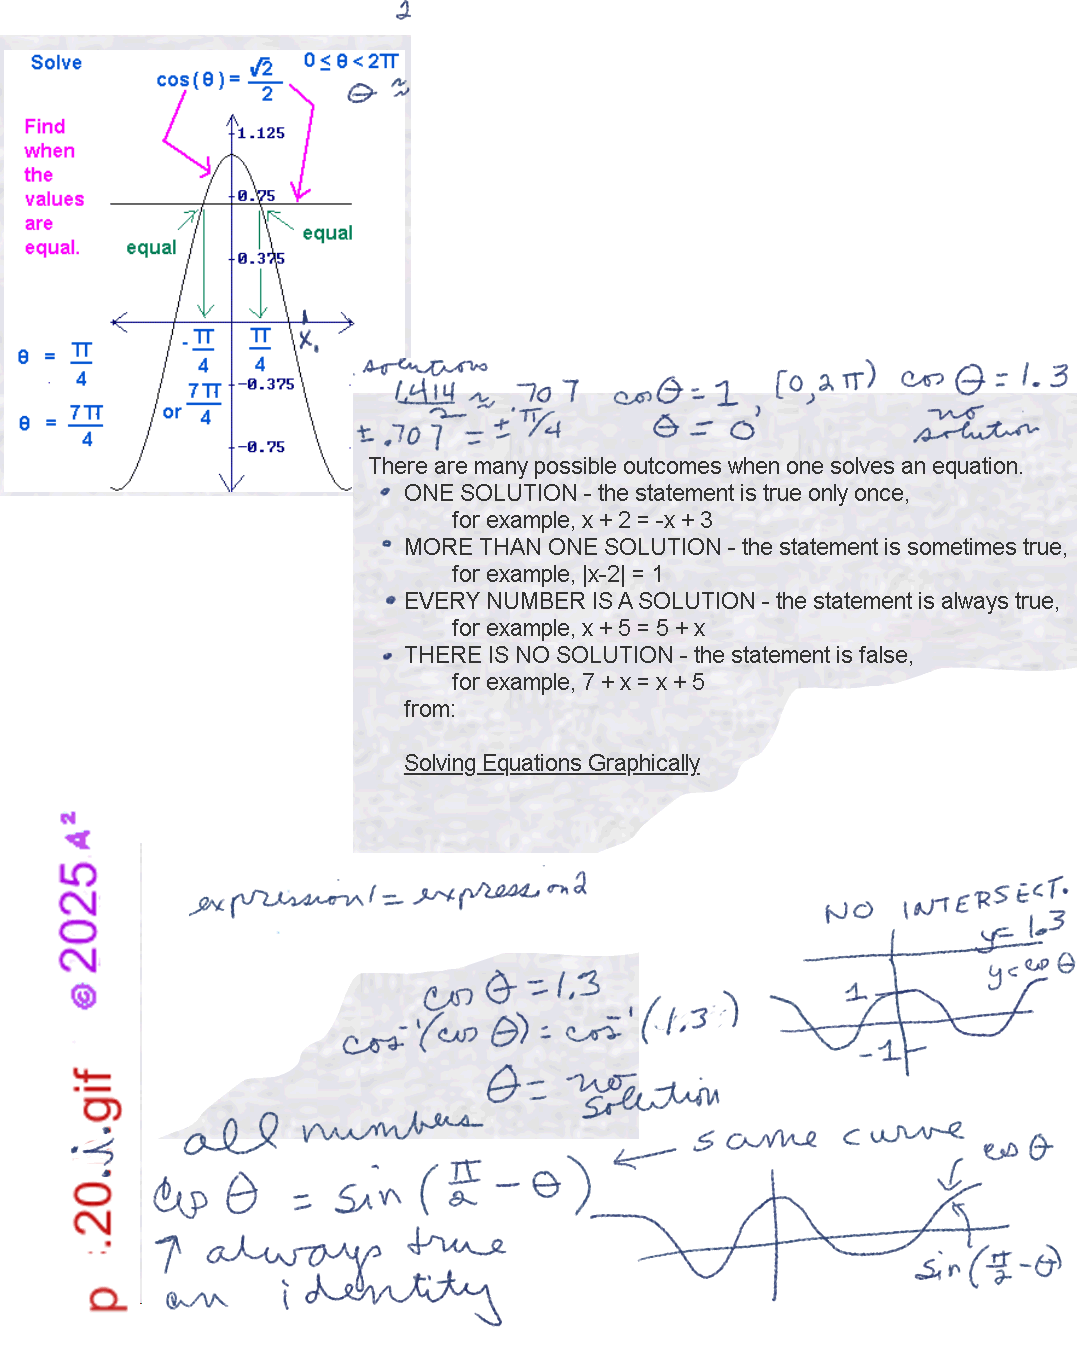 2
Solve
cos(θ) = √2/2
0 ≤ θ < 2π
θ ≈
Find
when
the
values
are
equal.
1.125
0.75
equal
equal
0.375
x,
-π/4
π/4
θ = π/4
-0.375
or 7π/4
θ = 7π/4
-0.75
solutions
1.414/2 ≈ .707
±.707 = ±π/4
cosθ = 1, [0,2π)
θ = 0
cos θ = 1.3
no
solution
There are many possible outcomes when one solves an equation.
• ONE SOLUTION - the statement is true only once,
for example, x + 2 = -x + 3
• MORE THAN ONE SOLUTION - the statement is sometimes true,
for example, |x-2| = 1
• EVERY NUMBER IS A SOLUTION - the statement is always true,
for example, x + 5 = 5 + x
• THERE IS NO SOLUTION - the statement is false,
for example, 7 + x = x + 5
from:
Solving Equations Graphically
© 2025 A²
expression1 = expression2
NO INTERSECT.
y = 1.3
y = cos θ
1
-1
cos θ = 1.3
cos⁻¹(cos θ) = cos⁻¹(1.3)
θ = no
solution
all numbers
← same curve
cos θ
cos θ = sin(π/2 - θ)
↑ always true
an identity
sin(π/2 - θ)